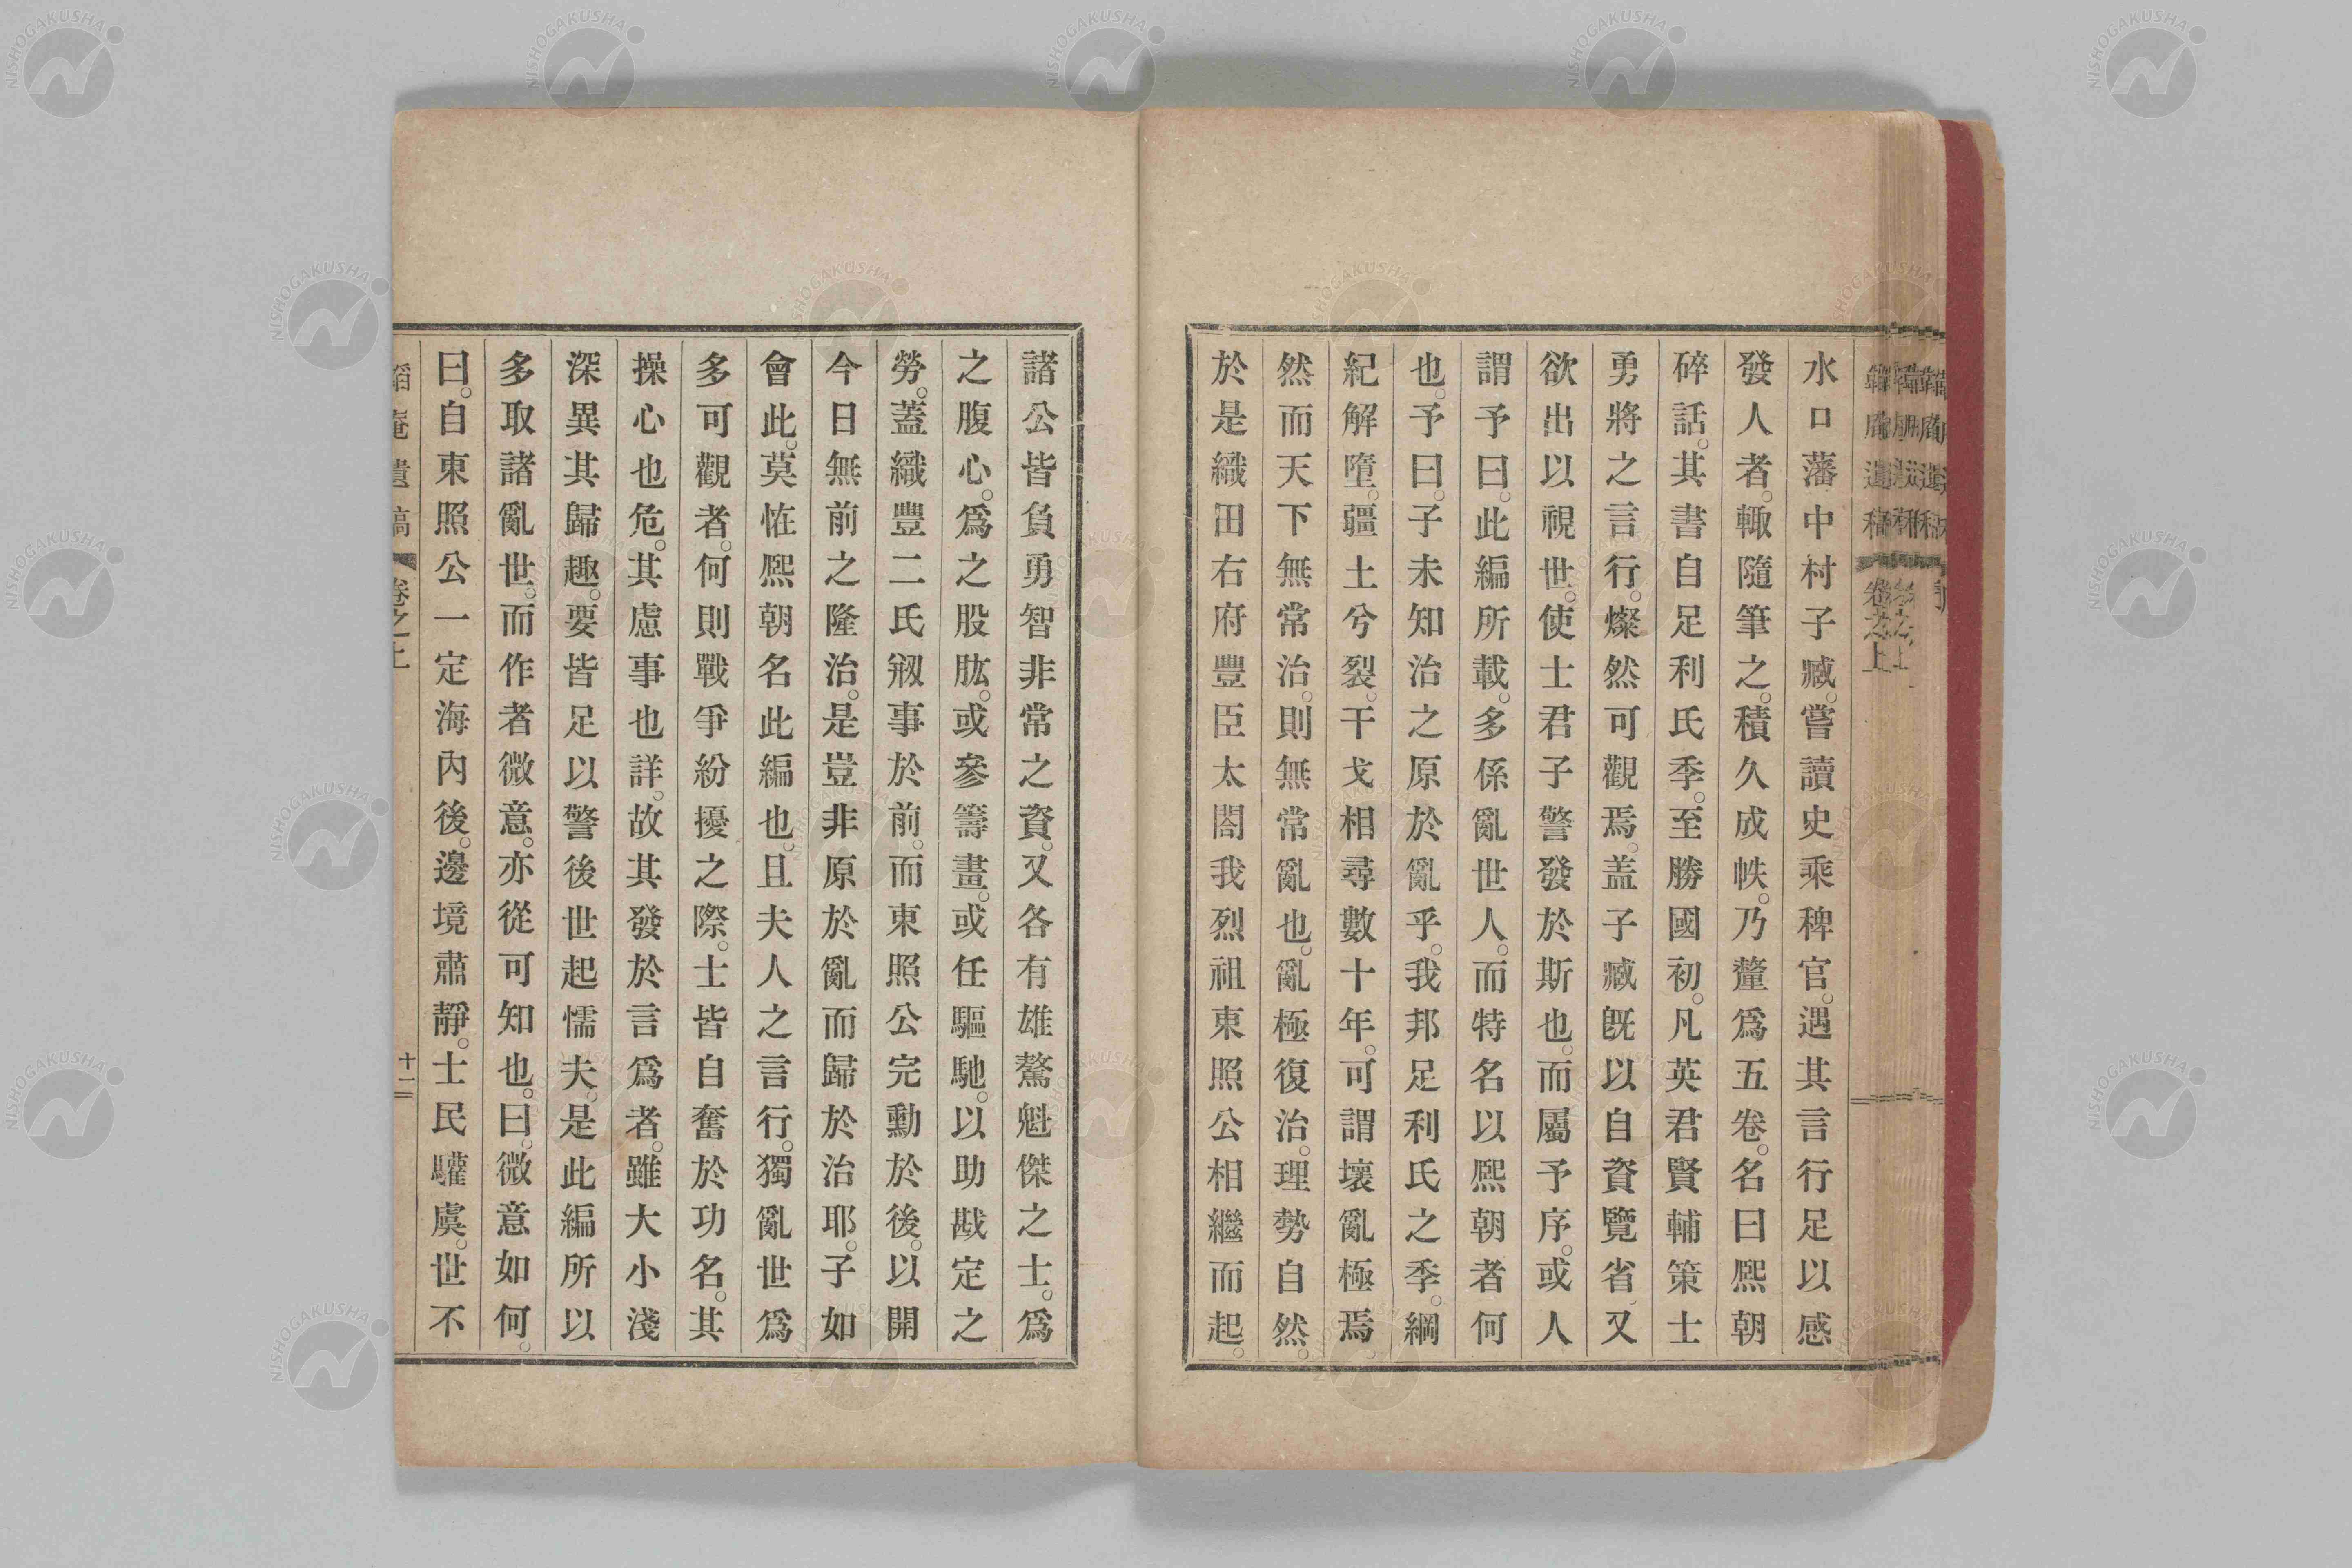 水口藩中村子臧。嘗讀史乘稗官。遇其言行足以感
發人者。輙隨筆之。積久成帙。乃釐爲五卷。名曰熙朝
碎話。其書自足利氏季。至勝國初。凡英君賢輔策士
勇將之言行。燦然可觀焉。盖子臧既以自資覽省又
欲出以視世。使士君子警發於斯也。而屬予序。或人
謂予曰。此編所載。多係亂世人。而特名以熙朝者何
也。予曰。子未知治之原於亂乎。我邦足利氏之季。綱
紀解墮。疆土兮裂。干戈相尋數十年。可謂壞亂極焉
然而天下無常治。則無常亂也。亂極復治。理勢自然。
於是織田右府豐臣太閤我烈祖東照公相繼而起。
諸公皆負勇智非常之資。又各有雄騖魁傑之士。爲
之腹心。爲之股肱。或參籌畫。或任驅馳。以助戡定之
勞。蓋織豐二氏剏事於前。而東照公完勳於後。以開
今日無前之隆治。是豈非原於亂而歸於治耶。子如
會此。莫恠熙朝名此編也。且夫人之言行。獨亂世爲
多可觀者。何則戰爭紛擾之際。士皆自奮於功名。其
操心也危。其慮事也詳。故其發於言爲者。雖大小淺
深異其歸趣。要皆足以警後世起懦夫。是此編所以
多取諸亂世。而作者微意。亦從可知也。曰。微意如何。
曰。自東照公一定海內後。邊境肅靜。士民驩虞。世不
韜庵遺稿 卷之上 十二
NISHOGAKUSHA